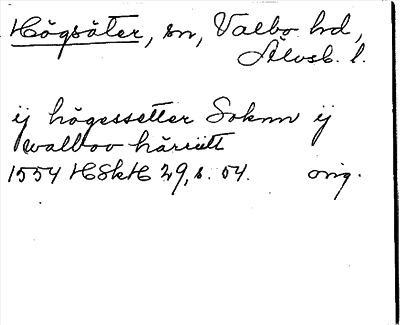 Högsäter, sn, Valbo hd,
Älvsb. l.
ij högessetter Soknn ij
walbov häriitt
1554 HSkH 29, s. 54. orig.